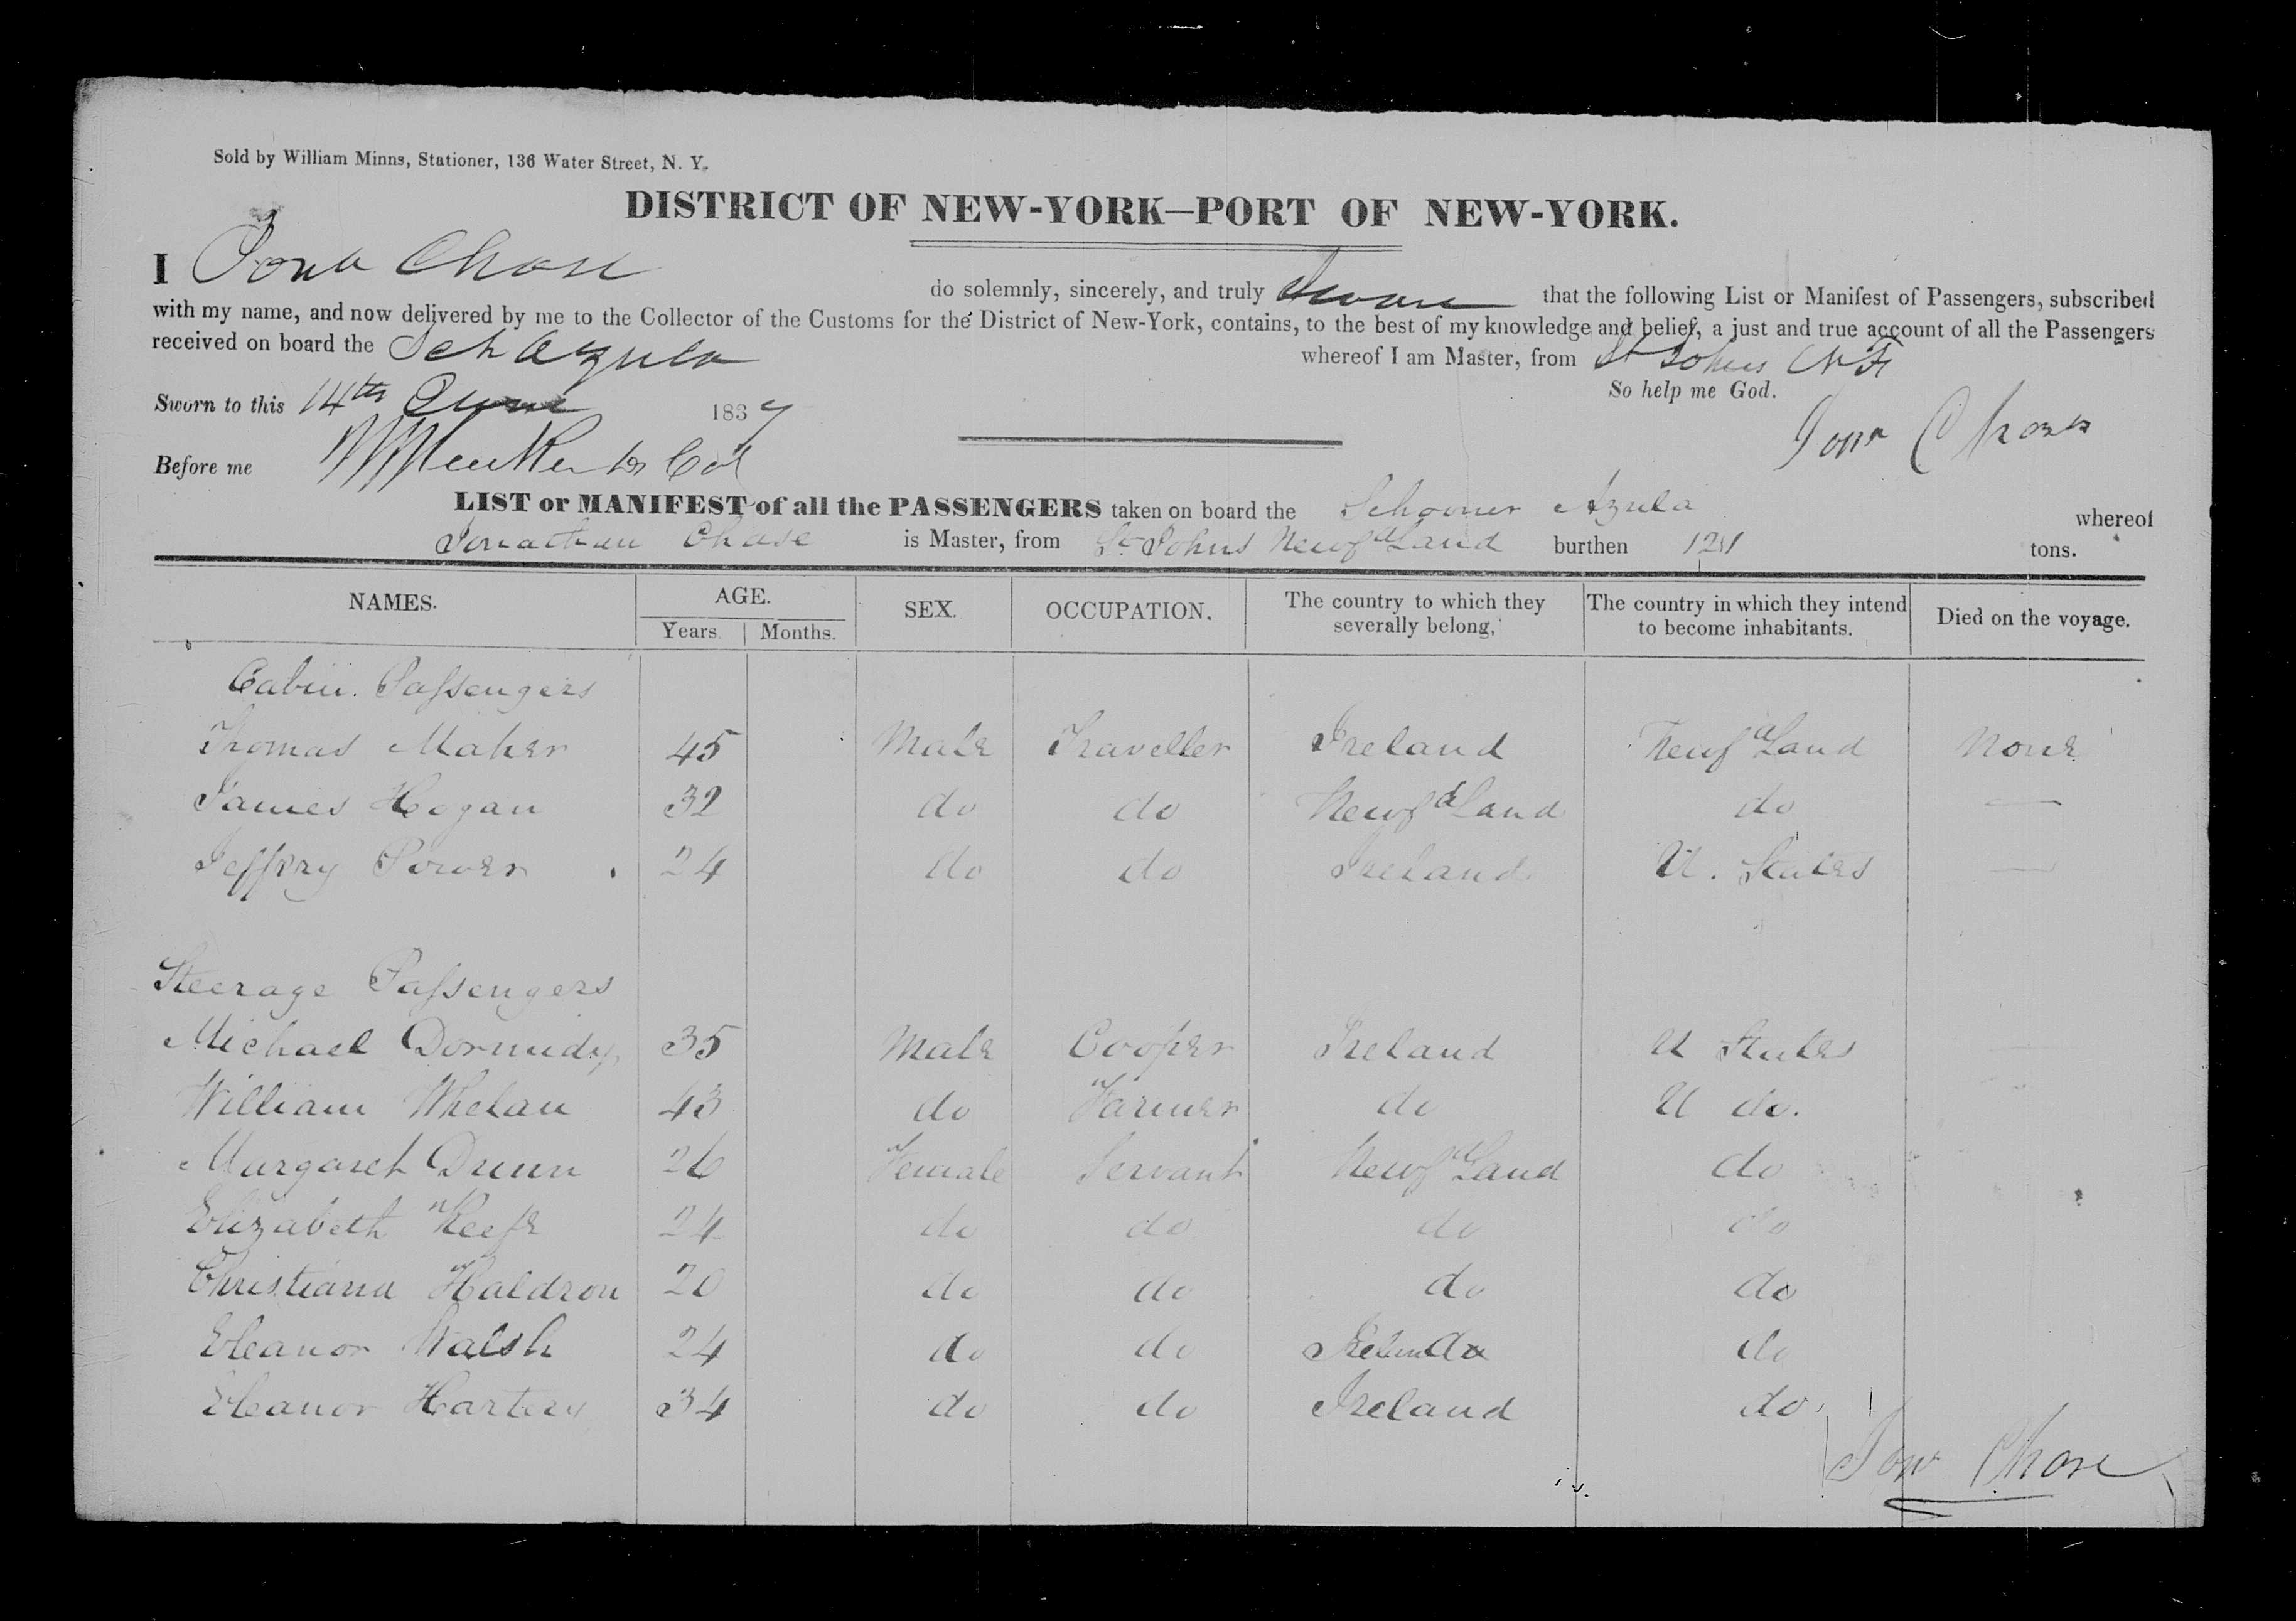 Sold by William Minns, Stationer, 136 Water Street, N. Y.
DISTRICT OF NEW-YORK—PORT OF NEW-YORK.
I Jona Chase do solemnly, sincerely, and truly Swear that the following List or Manifest of Passengers, subscribed
with my name, and now delivered by me to the Collector of the Customs for the District of New-York, contains, to the best of my knowledge and belief, a just and true account of all the Passengers
received on board the Sch Azula whereof I am Master, from St Johns N F
So help me God.
Sworn to this 14th June 1837
Jona Chase
Before me
LIST or MANIFEST of all the PASSENGERS taken on board the Schooner Azula whereof
Jonathan Chase is Master, from St Johns Newfd Land burthen 121 tons.
NAMES. AGE. SEX. OCCUPATION. The country to which they severally belong, The country in which they intend to become inhabitants. Died on the voyage.
Years. Months.
Cabin Passengers
Thomas Maher 45 Male Traveller Ireland Newfd Land None
James Hogan 32 do do Newfd Land do —
Jeffry Power 24 do do Ireland U. States —
Steerage Passengers
Michael Dormudy 35 Male Cooper Ireland U States
William Whelan 43 do Farmer do U do.
Margaret Dunn 26 Female Servant Newfd Land do
Elizabeth Keefe 24 do do do do
Christiana Haldron 20 do do do do
Eleanor Walsh 24 do do Ireland do
Eleanor Hartery 34 do do Ireland do
Jona Chase